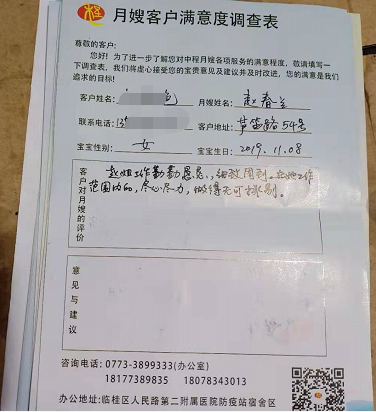 程 月嫂客户满意度调查表
尊敬的客户:
您好!为了进一步了解您对中程月嫂各项服务的满意程度,敬请填写一
下调查表,我们将虚心接受您的宝贵意见及建议并及时改进,您的满意是我们
追求的目标!
客户姓名: 月嫂姓名: 赵春兰
联系电话: 客户地址: 芦笛路54号
宝宝性别: 女 宝宝生日: 2019.11.08
客户对月嫂的评价
赵姐工作勤勤恳恳,细致周到。在她工作
范围内的,尽心尽力,做得无可挑剔。
意见与建议
咨询电话:0773-3899333(办公室)
18177389835 18078343013
办公地址:临桂区人民路第二附属医院防疫站宿舍区